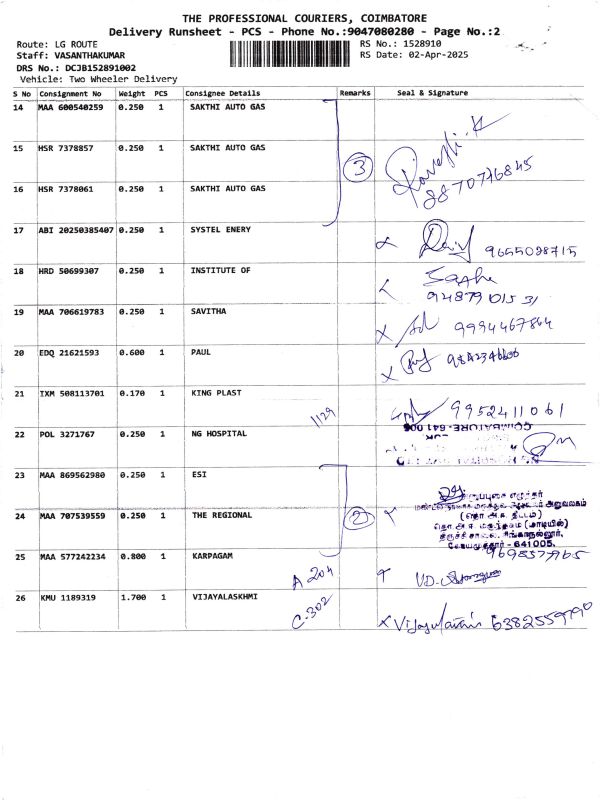 THE PROFESSIONAL COURIERS, COIMBATORE
Delivery Runsheet - PCS - Phone No.:9047080280 - Page No.:2
Route: LG ROUTE
RS No.: 1528910
Staff: VASANTHAKUMAR
RS Date: 02-Apr-2025
DRS No.: DCJB152891002
Vehicle: Two Wheeler Delivery
S No Consignment No Weight PCS Consignee Details Remarks Seal & Signature
14 MAA 600540259 0.250 1 SAKTHI AUTO GAS
15 HSR 7378857 0.250 1 SAKTHI AUTO GAS 3
8870776845
16 HSR 7378061 0.250 1 SAKTHI AUTO GAS
17 ABI 20250385407 0.250 1 SYSTEL ENERY 9655098715
18 HRD 50699307 0.250 1 INSTITUTE OF
9487910531
19 MAA 706619783 0.250 1 SAVITHA 9994467844
20 EDQ 21621593 0.600 1 PAUL 9842346606
21 IXM 508113701 0.170 1 KING PLAST 1129 9952411061
COIMBATORE - 641 006
22 POL 3271767 0.250 1 NG HOSPITAL
23 MAA 869562980 0.250 1 ESI
24 MAA 707539559 0.250 1 THE REGIONAL 2
(தொ.அ.ச. திட்டம்)
கோயமுத்தூர் - 641005.
25 MAA 577242234 0.800 1 KARPAGAM A 204
26 KMU 1189319 1.700 1 VIJAYALASKHMI C-302 6382559790